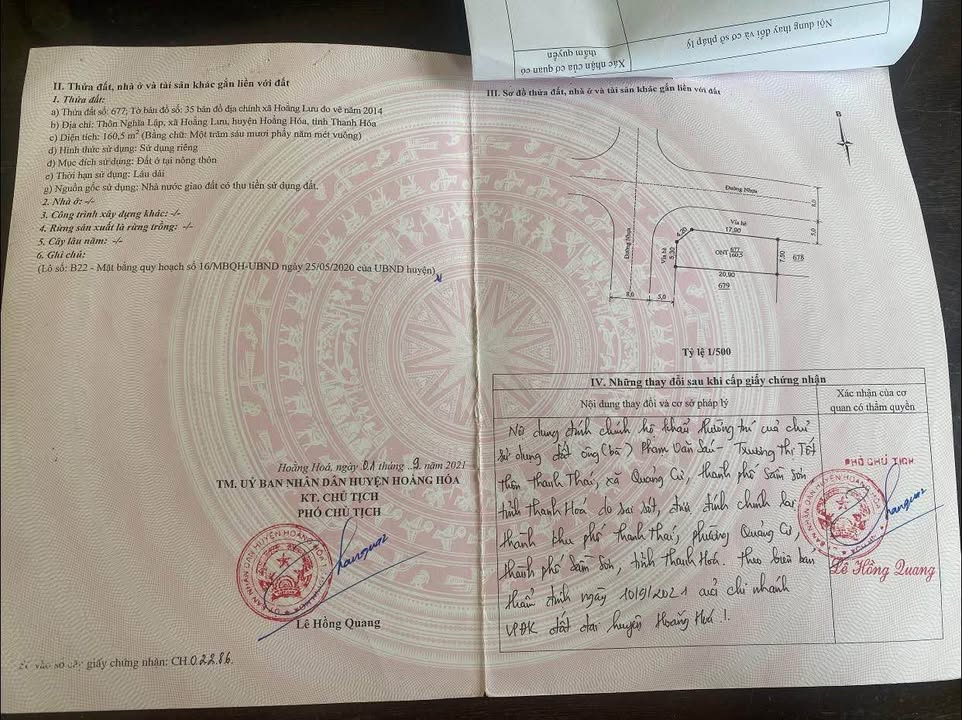 Nội dung thay đổi và cơ sở pháp lý
Xác nhận của cơ quan có
thẩm quyền
II. Thửa đất, nhà ở và tài sản khác gắn liền với đất
1. Thửa đất:
a) Thửa đất số: 677, Tờ bản đồ số: 35 bản đồ địa chính xã Hoằng Lưu đo vẽ năm 2014
b) Địa chỉ: Thôn Nghĩa Lập, xã Hoằng Lưu, huyện Hoằng Hóa, tỉnh Thanh Hóa
c) Diện tích: 160,5 m² (Bằng chữ: Một trăm sáu mươi phẩy năm mét vuông)
d) Hình thức sử dụng: Sử dụng riêng
đ) Mục đích sử dụng: Đất ở tại nông thôn
e) Thời hạn sử dụng: Lâu dài
g) Nguồn gốc sử dụng: Nhà nước giao đất có thu tiền sử dụng đất.
2. Nhà ở: -/-
3. Công trình xây dựng khác: -/-
4. Rừng sản xuất là rừng trồng: -/-
5. Cây lâu năm: -/-
6. Ghi chú:
(Lô số: B22 - Mặt bằng quy hoạch số 16/MBQH-UBND ngày 25/05/2020 của UBND huyện)
Hoằng Hoá, ngày 01 tháng 9 năm 2021
TM. UỶ BAN NHÂN DÂN HUYỆN HOẰNG HÓA
KT. CHỦ TỊCH
PHÓ CHỦ TỊCH
Lê Hồng Quang
Số vào sổ cấp giấy chứng nhận: CH.02286.
III. Sơ đồ thửa đất, nhà ở và tài sản khác gắn liền với đất
B
Đường Nhựa
8,0
5,0
Vỉa hè
17,90
4,20
Đường Nhựa
Vỉa hè
5,30
ONT 677
160,5
7,50
678
20,90
679
8,0
5,0
Tỷ lệ 1/500
IV. Những thay đổi sau khi cấp giấy chứng nhận
Nội dung thay đổi và cơ sở pháp lý
Xác nhận của cơ
quan có thẩm quyền
Nội dung đính chính hộ khẩu thường trú của chủ
sử dụng đất ông (bà) Phạm Văn Sáu - Trương Thị Tốt
thôn Thanh Thái, xã Quảng Cư, thành phố Sầm Sơn
tỉnh Thanh Hoá do sai sót, được đính chính lại
thành khu phố Thanh Thái, phường Quảng Cư,
thành phố Sầm Sơn, tỉnh Thanh Hoá. Theo biên bản
thẩm định ngày 10/9/2021 của chi nhánh
VPĐK đất đai huyện Hoằng Hoá ./.
PHÓ CHỦ TỊCH
Lê Hồng Quang